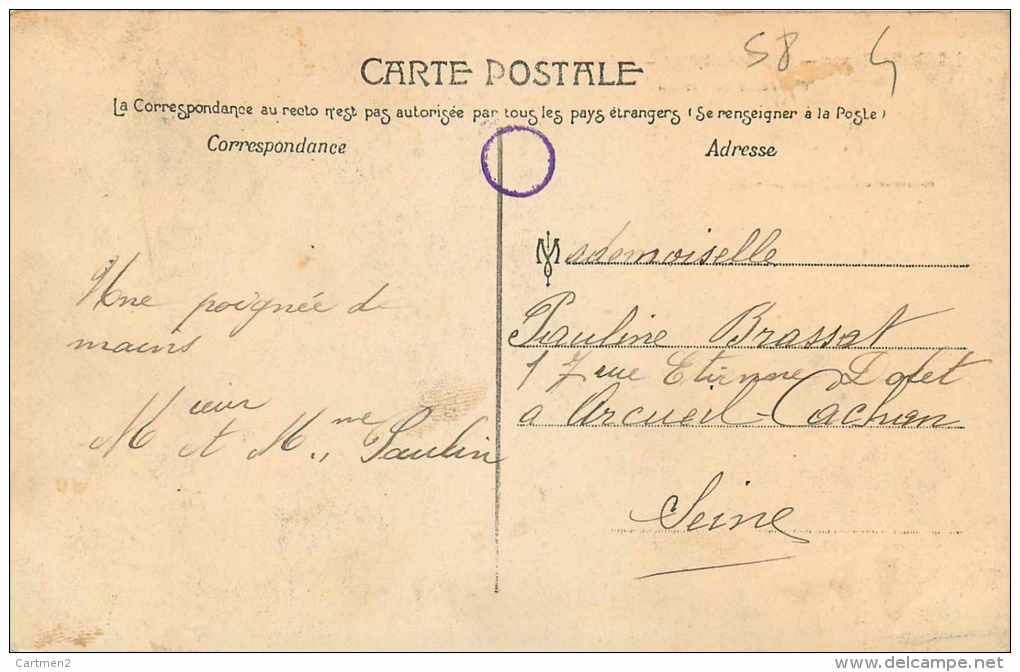 58 - 4
CARTE POSTALE
La Correspondance au recto n'est pas autorisée par tous les pays étrangers (Se renseigner à la Poste)
Correspondance
Adresse
Une poignée de
mains
Mieur et Mme Paulin
Mademoiselle
Pauline Brassat
17 rue Etienne Dolet
a Arcueil-Cachan
Seine
Cartmen2
www.delcampe.net